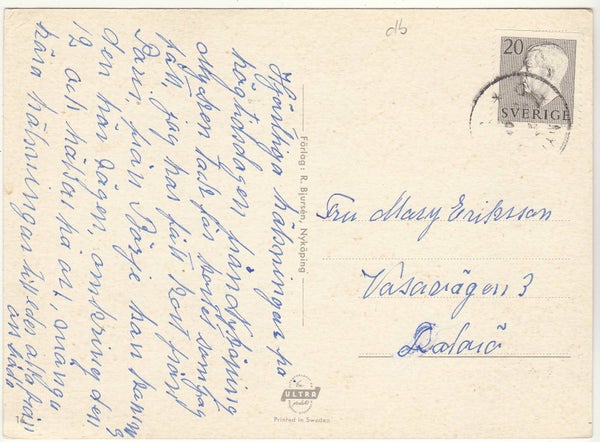 db
20
SVERIGE
Hjärtliga hälsningar på
högtidsdagen från Nyköping
Mycket tack för kortet som jag
fått, jag har fått kort från
Paris från Börje han skriver
den här dagen, omkring den
12 och hälsar ha ort, många
kära hälsningar till eder alla från
oss båda
Förlag: R. Bjursén, Nyköping
Fru Mary Eriksson
Vasavägen 3
Dalarö
ULTRA
Printed in Sweden